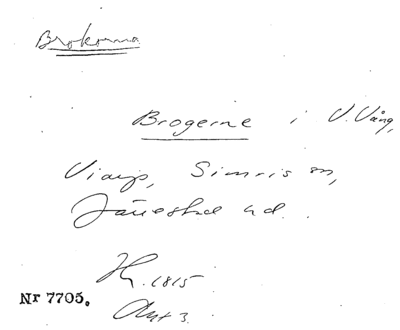 Brokorna
Brogerne i V. Vång,
Viarp, Simris sn,
Järrestad hd.
Hg. 1815
Akt 3.
Nr 7705.